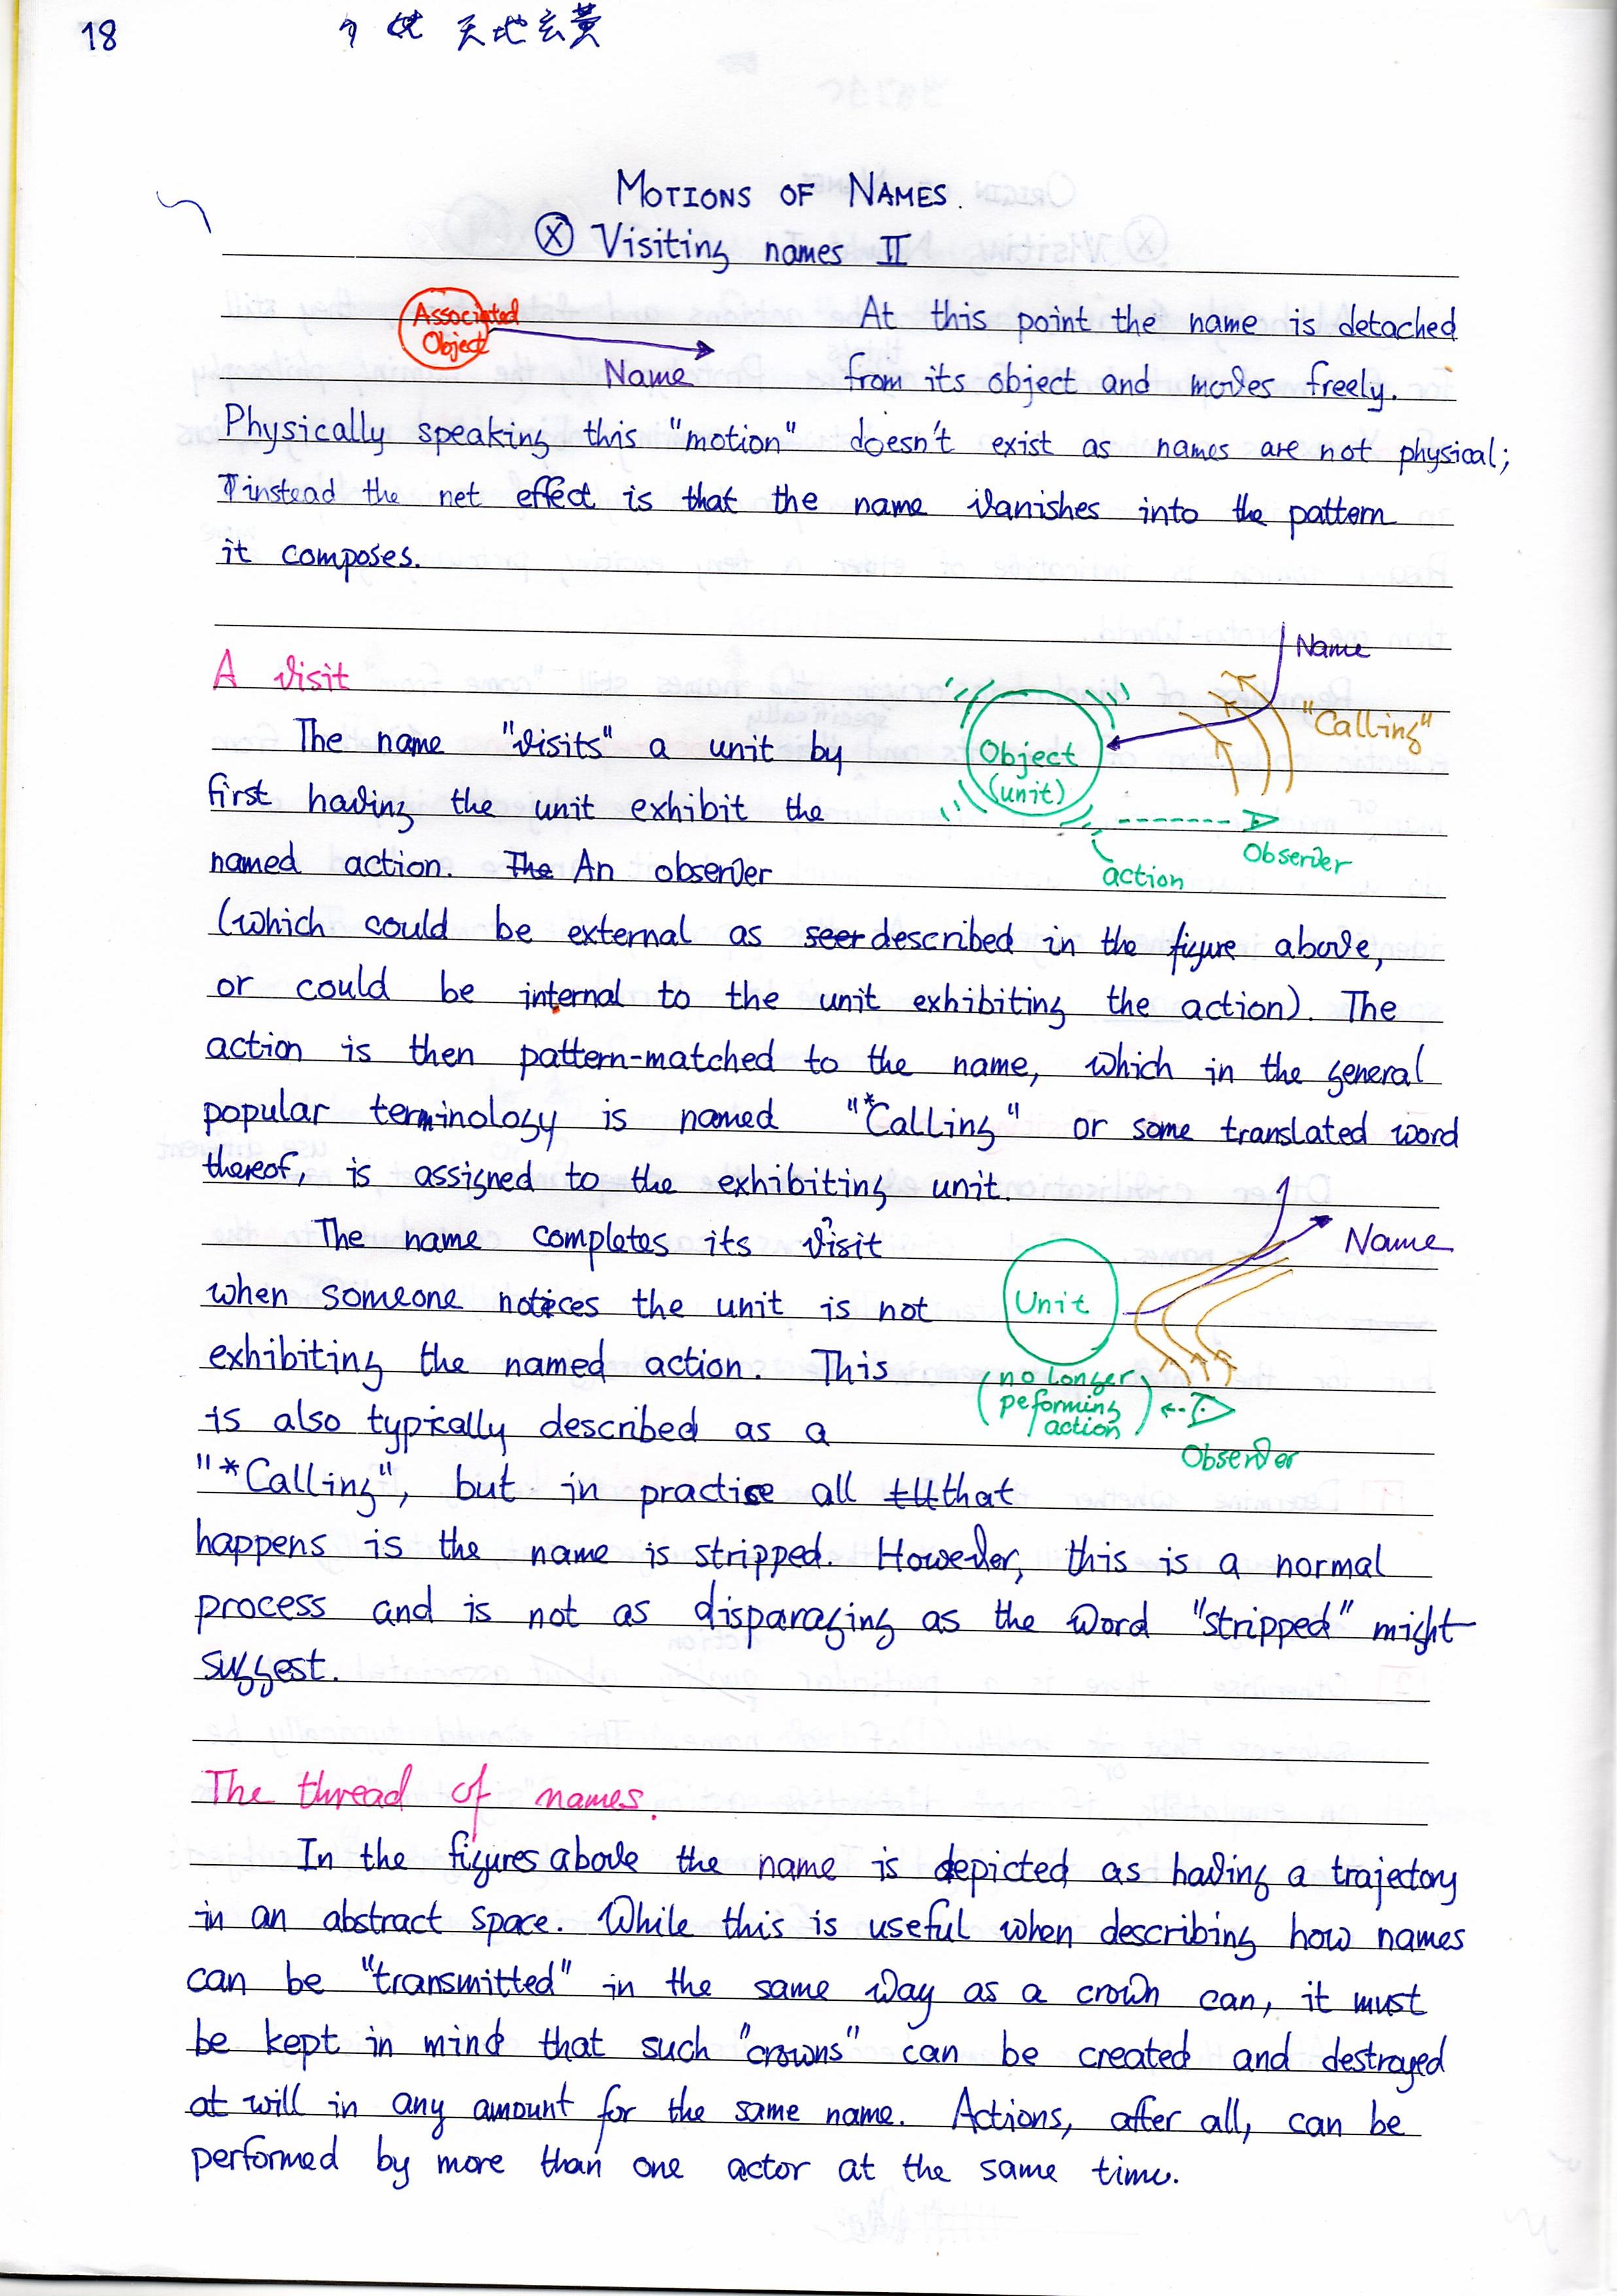 18
天地玄黃
MOTIONS OF NAMES.
Ⓧ Visiting names II
Associated
Object
Name
At this point the name is detached
from its object and moves freely.
Physically speaking this "motion" doesn't exist as names are not physical;
instead the net effect is that the name vanishes into the pattern
it composes.
A visit
Name
"Calling"
Object
(unit)
Observer
action
The name "visits" a unit by
first having the unit exhibit the
named action. The An observer
(which could be external as seer described in the figure above,
or could be internal to the unit exhibiting the action). The
action is then pattern-matched to the name, which in the general
popular terminology is named "*Calling" or some translated word
thereof, is assigned to the exhibiting unit.
The name completes its visit
when someone notices the unit is not
exhibiting the named action. This
is also typically described as a
"*Calling", but in practise all that
happens is the name is stripped. However, this is a normal
process and is not as disparaging as the word "stripped" might
suggest.
Name
Unit
(no longer
peforming
action)
Observer
The thread of names.
In the figures above the name is depicted as having a trajectory
in an abstract space. While this is useful when describing how names
can be "transmitted" in the same way as a crown can, it must
be kept in mind that such "crowns" can be created and destroyed
at will in any amount for the same name. Actions, after all, can be
performed by more than one actor at the same time.